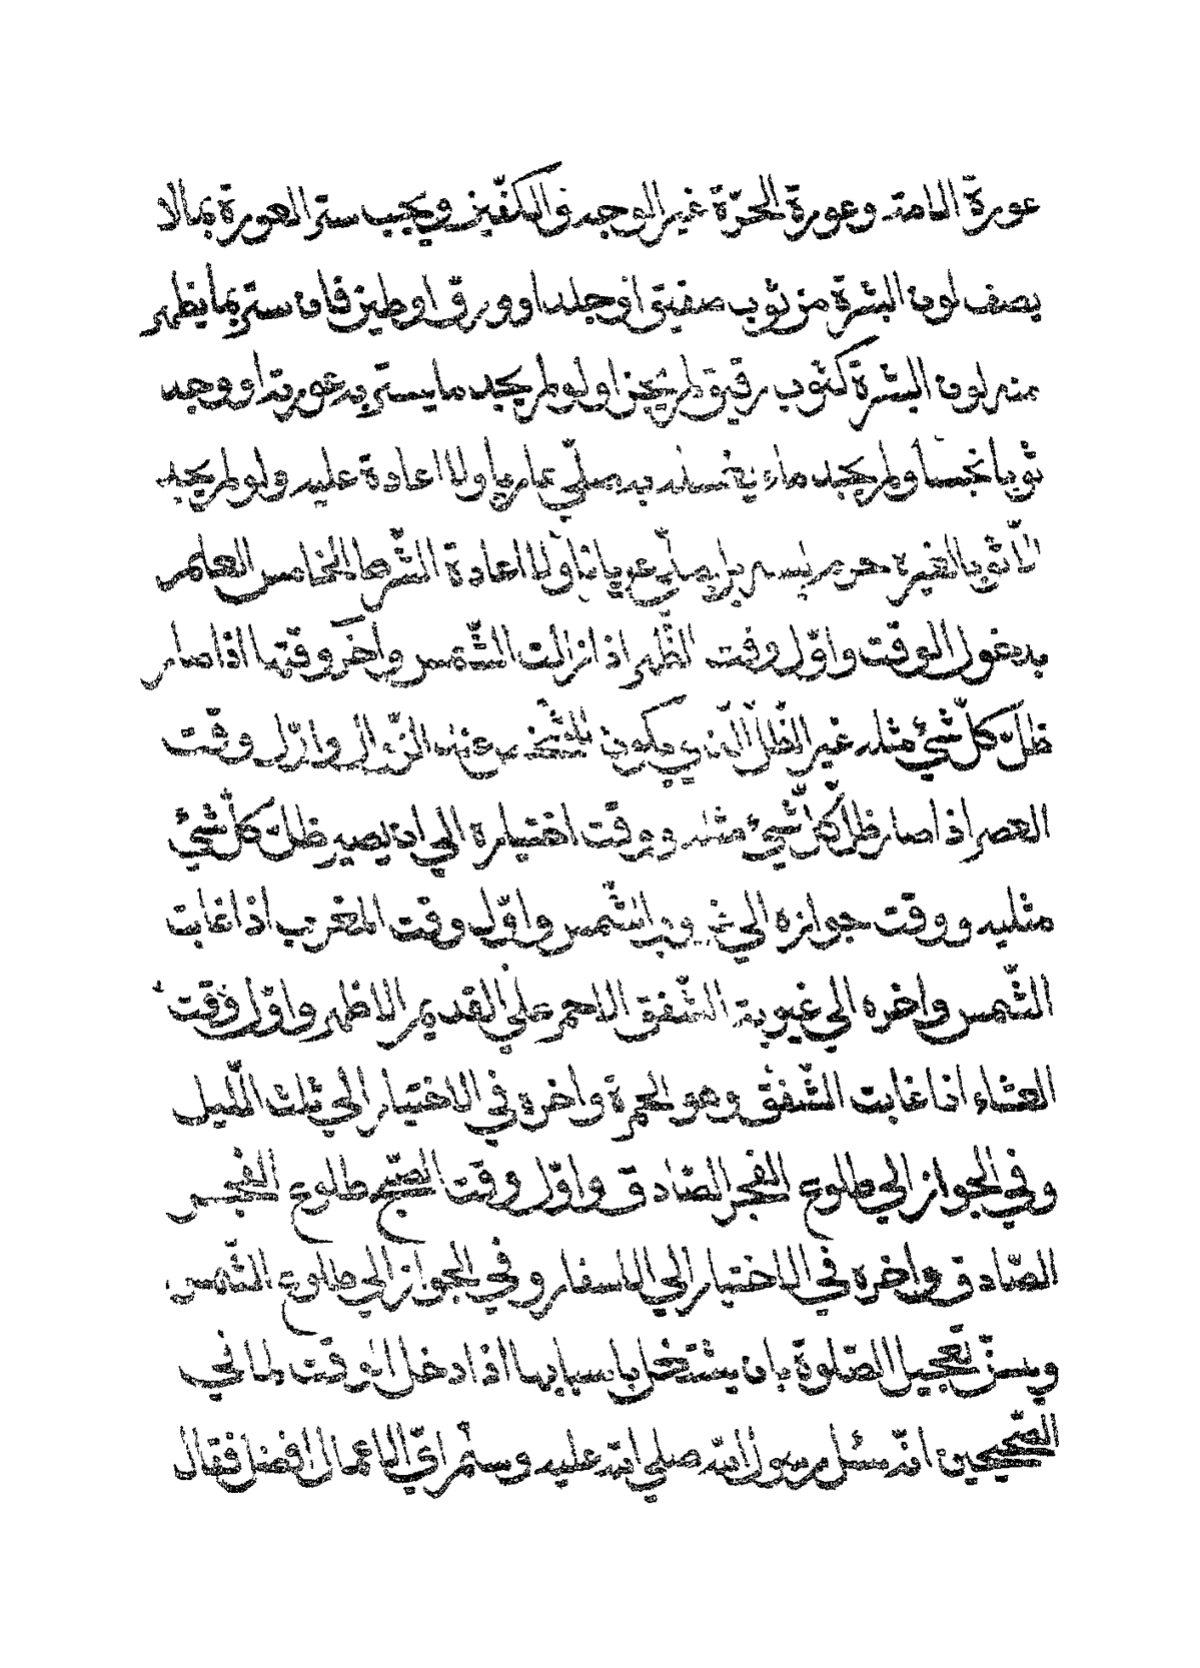 عورة الامة وعورة الحرّة غير الوجه والكفّين ويجب ستر العورة بما لا
يصف لون البشرة من ثوب صفيق او جلد او ورق او طين فان ستر بما يظهر
منه لون البشرة كثوب رقيق لم يجز ولو لم يجد ما يستر به عورته او وجد
ثوبا نجسا ولم يجد ماء يغسله به صلّي عاريا ولا اعادة عليه ولو لم يجد
الّا ثوبا لغيره حرم لبسه بل يصلّي عريانا ولا اعادة الشّرط الخامس العلم
بدخول الوقت واوّل وقت الظّهر اذا زالت الشّمس واخر وقتها اذا صار
ظلّ كلّ شيئ مثله غير الظلّ الّذي يكون للشّخص عند الزّوال واوّل وقت
العصر اذا صار ظلّ كلّ شيئ مثله ووقت اختياره الي ان يصير ظلّ كلّ شيئ
مثليه ووقت جوازه الي غروب الشّمس واوّل وقت المغرب اذا غابت
الشّمس واخره الي غيوبة الشّفق الاحمر علي القديم الاظهر واوّل وقت
العشاء اذا غابت الشّفق وهو الحمرة واخره في الاختيار الي ثلث اللّيل
وفي الجواز الي طلوع الفجر الصّادق واوّل وقت الصّبح طلوع الفجر
الصّادق واخره في الاختيار الي الاسفار وفي الجواز الي طلوع الشّمس
ويسنّ تعجيل الصّلوة بان يشتغل باسبابها اذا دخل الوقت لما في
الصّحيحين انّه سئل رسول الله صلي الله عليه وسلّم ايّ الاعمال افضل فقال